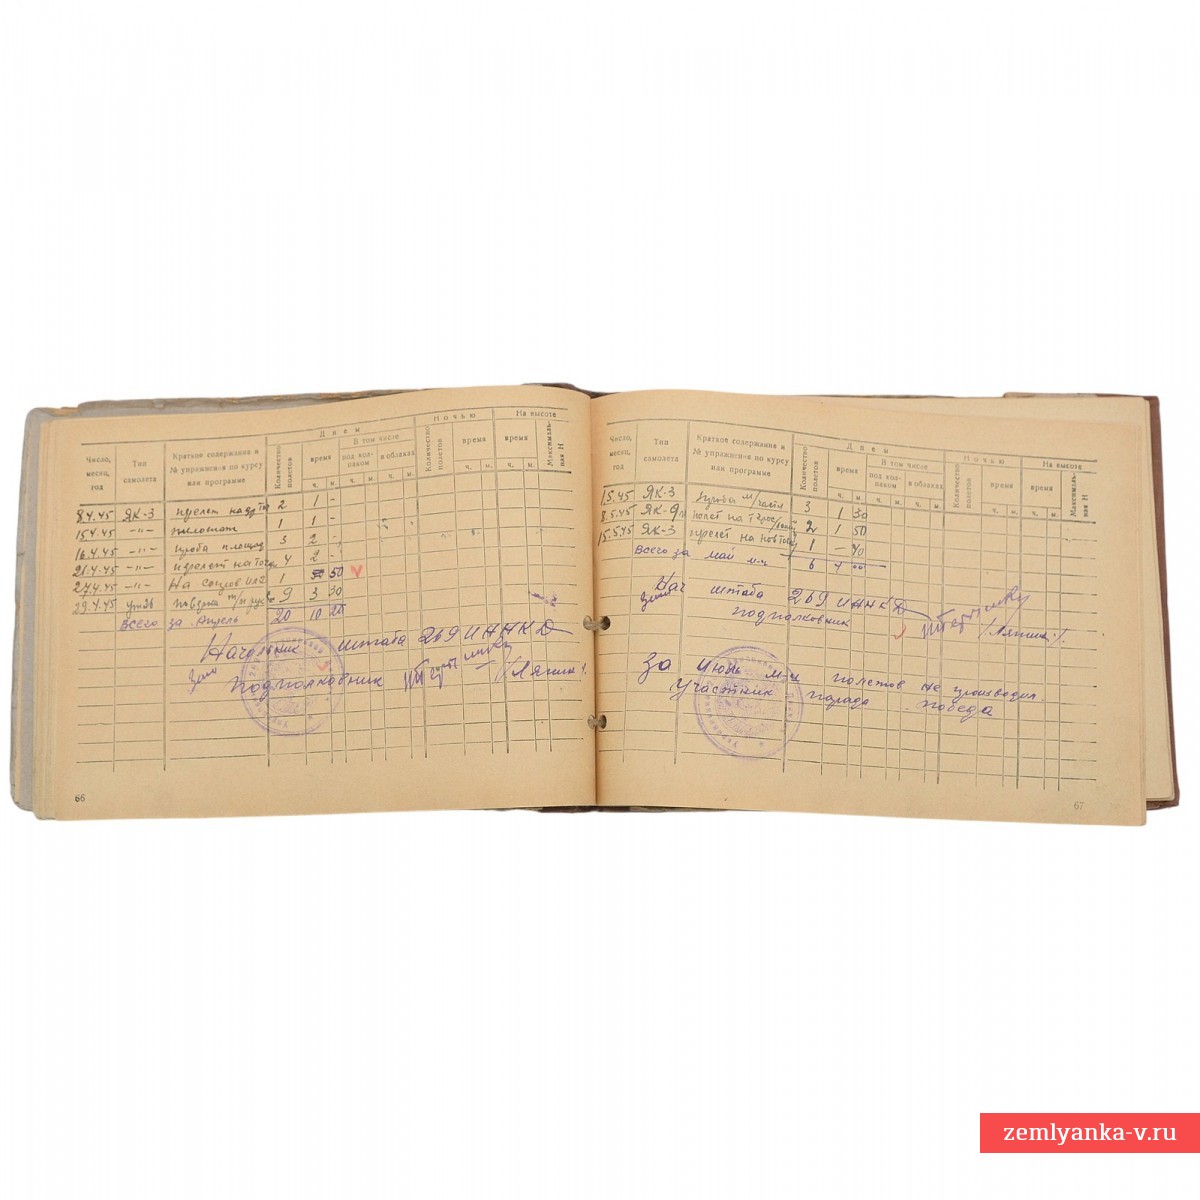 Число, месяц, год
Тип самолета
Краткое содержание и № упражнен-я по курсу или программе
Днем
Количество полетов
время
В том числе
под кол-паком
в облаках
Ночью
Количество полетов
время
На высоте
время
Максималь-ная Н
ч. м. ч. м. ч. м. ч. м. ч. м.
8.4.45 ЯК-3 2 1 -
15.4.45 -"- 1 1 -
16.4.45 -"- проба площад 3 2 -
21.4.45 -"- перелет на 4 2 -
27.4.45 -"- На 1 50
29.4.45 9 3 30
Всего за Апрель 20 10 20
Начальник штаба 269 ИАНКД
подполковник /Ляпин/
66
Число, месяц, год
Тип самолета
Краткое содержание и № упражнен-я по курсу или программе
Днем
Количество полетов
время
В том числе
под кол-паком
в облаках
Ночью
Количество полетов
время
На высоте
время
Максималь-ная Н
ч. м. ч. м. ч. м. ч. м. ч. м.
1.5.45 ЯК-3 м/части 3 1 30
8.5.45 ЯК-9 полет на 2 1 50
15.5.45 ЯК-3 перелет на 1 - 40
Всего за май м-ц 6 4 00
Нач штаба 269 ИАНКД
подполковник /Ляпин/.
За июль м-ц полетов не производил.
Участник парада победа
67
zemlyanka-v.ru